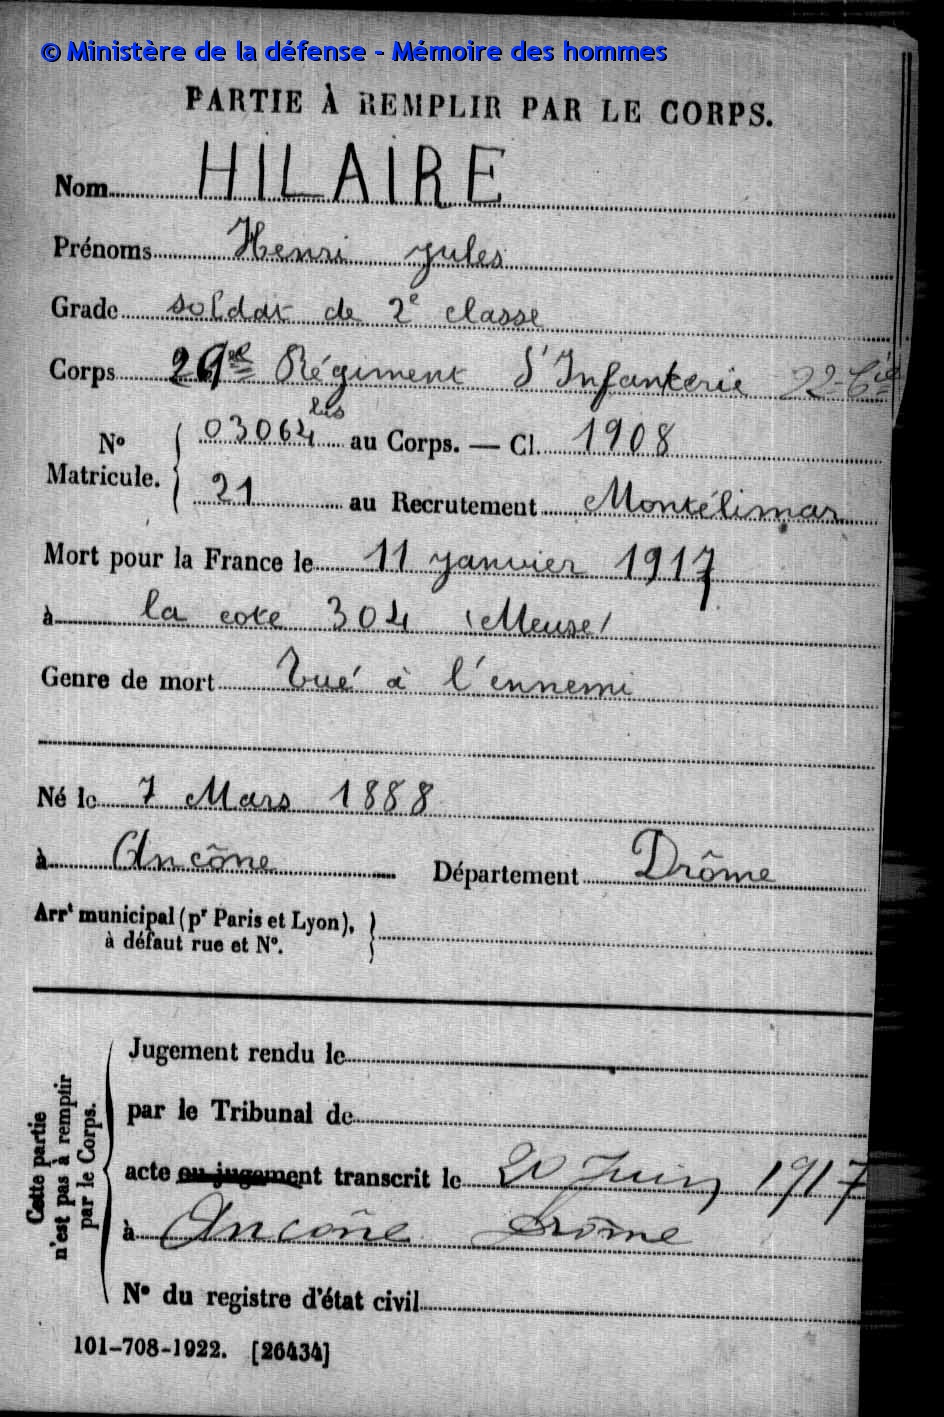 © Ministère de la défense - Mémoire des hommes
PARTIE À REMPLIR PAR LE CORPS.
Nom HILAIRE
Prénoms Henri Jules
Grade soldat de 2e classe
Corps Régiment d'Infanterie 22e Cie
N° Matricule. { 03064 bis au Corps. — Cl. 1908
21 au Recrutement Montélimar
Mort pour la France le 11 janvier 1917
à la cote 304 (Meuse)
Genre de mort Tué à l'ennemi
Né le 7 Mars 1888
à Ancône Département Drôme
Arrt municipal (pr Paris et Lyon), }
à défaut rue et N°.
Cette partie n'est pas à remplir par le Corps.
Jugement rendu le
par le Tribunal de
acte ou jugement transcrit le 20 Juin 1917
à Ancône Drôme
N° du registre d'état civil
101-708-1922. [26434]